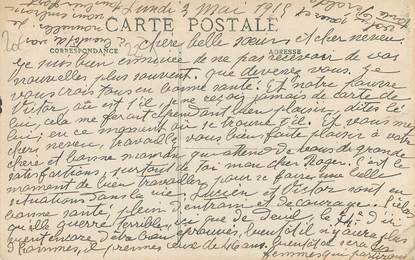 Lundi 3 Mai 1918
CARTE POSTALE
CORRESPONDANCE
ADRESSE
chère belle sœur et cher neveu.
Je suis bien ennuiée de ne pas recevoir de vos
nouvelles plus souvent. que devenez vous. Je
vous crois tous en bonne santé. Et notre pauvre
Victor, où est t'il, je ne reçois jamais de carte de
lui, cela me ferait cependant bien plaisir, dites le
lui; en ce moment où se trouve t'il. Et vous mon
cher neveu, travaillez vous bien faite plaisir à votre
chère et bonne maman qui attend de vous de grande
satisfactions, surtout de toi mon cher Roger. C'est le
moment de bien travailler, pour se faire une belle
situations dans la vie. Lucien et Victor sont en
bonne santé, plein d'entrain et de courage. Mais
qu'elle guerre terrible, que de deuil, le
vont encore d'être bien éprouvés, bientôt il n'y aura plus
d'hommes, il prennes ceux de 46 ans. bientôt ce sera les
femmes qui partiront